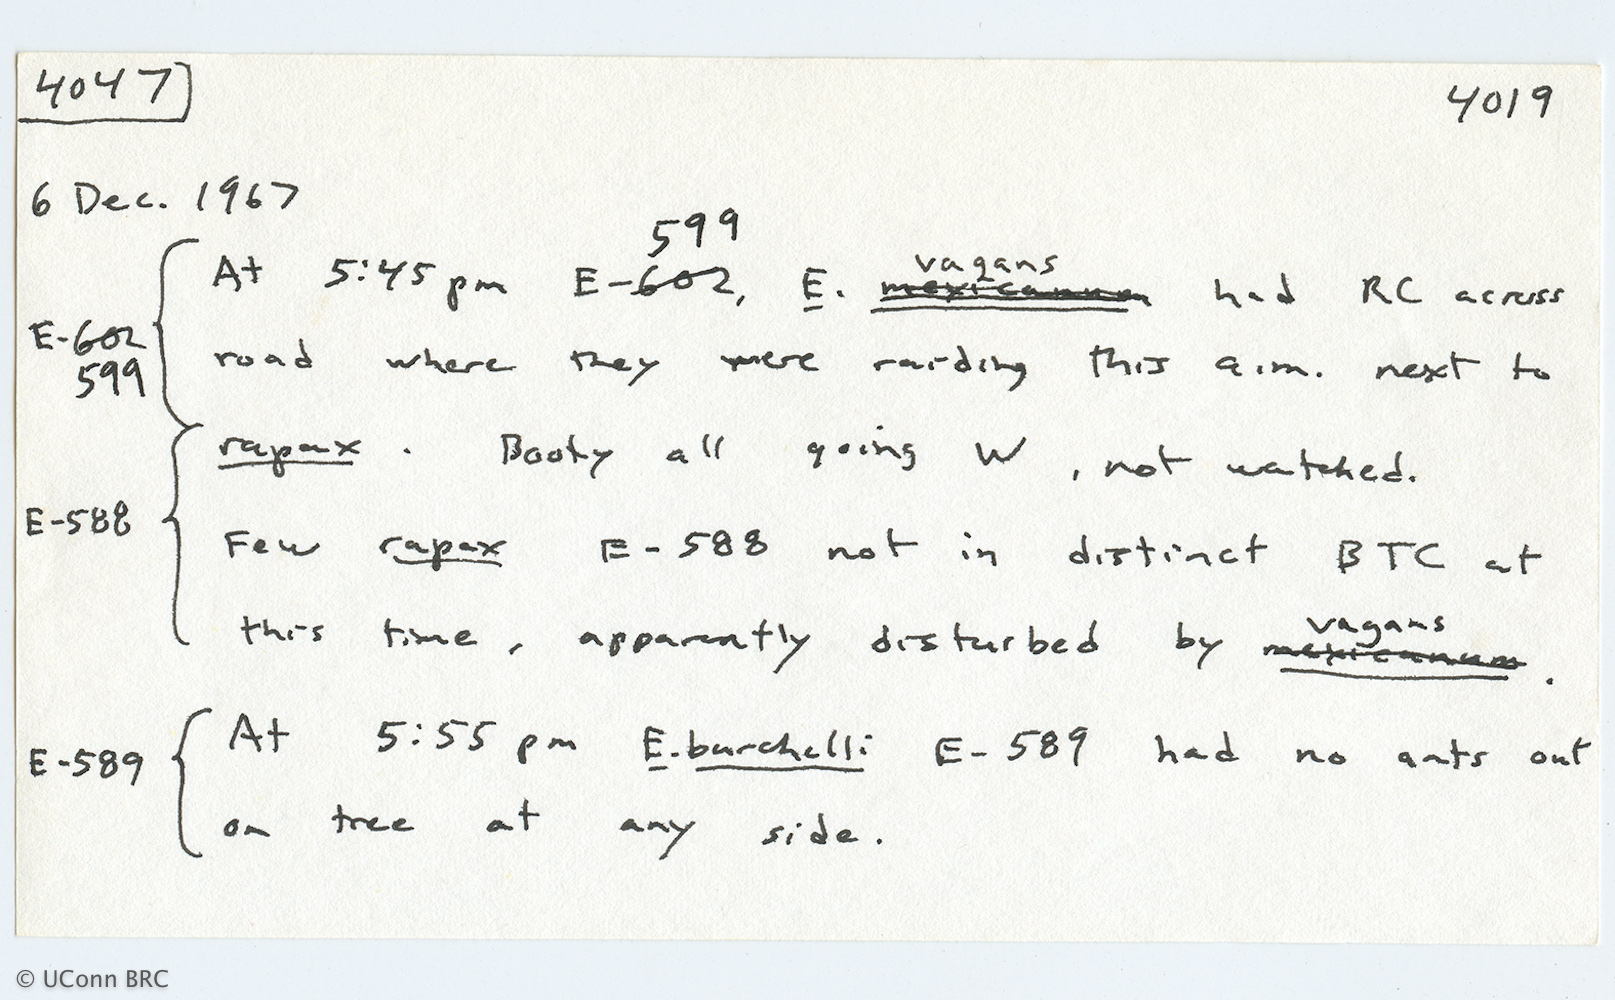 4047 4019
6 Dec. 1967
599
At 5:45 pm E-602, E. mexicanum vagans had RC across
E-602
599
road where they were raiding this a.m. next to
rapax. Booty all going W, not watched.
E-588
Few rapax E-588 not in distinct BTC at
this time, apparently disturbed by mexicanum vagans.
E-589
At 5:55 pm E. burchelli E-589 had no ants out
on tree at any side.
© UConn BRC